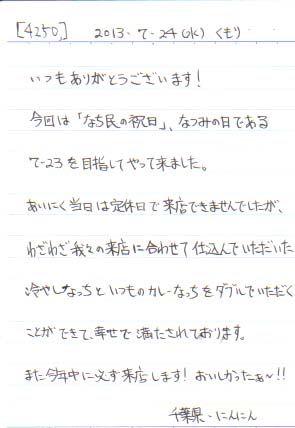 [4250] 2013.7-24(水) くもり
いつもありがとうございます!
今回は「なち民の祝日」、なつみの日である
7-23を目指してやって来ました。
あいにく当日は定休日で来店できませんでしたが、
わざわざ我々の来店に合わせて仕込んでいただいた
冷やしなっちといつものカレーなっちをダブルでいただく
ことができて、幸せで満たされております。
また今年中に必ず来店します! おいしかったぁ〜!!
千葉県・にんにん